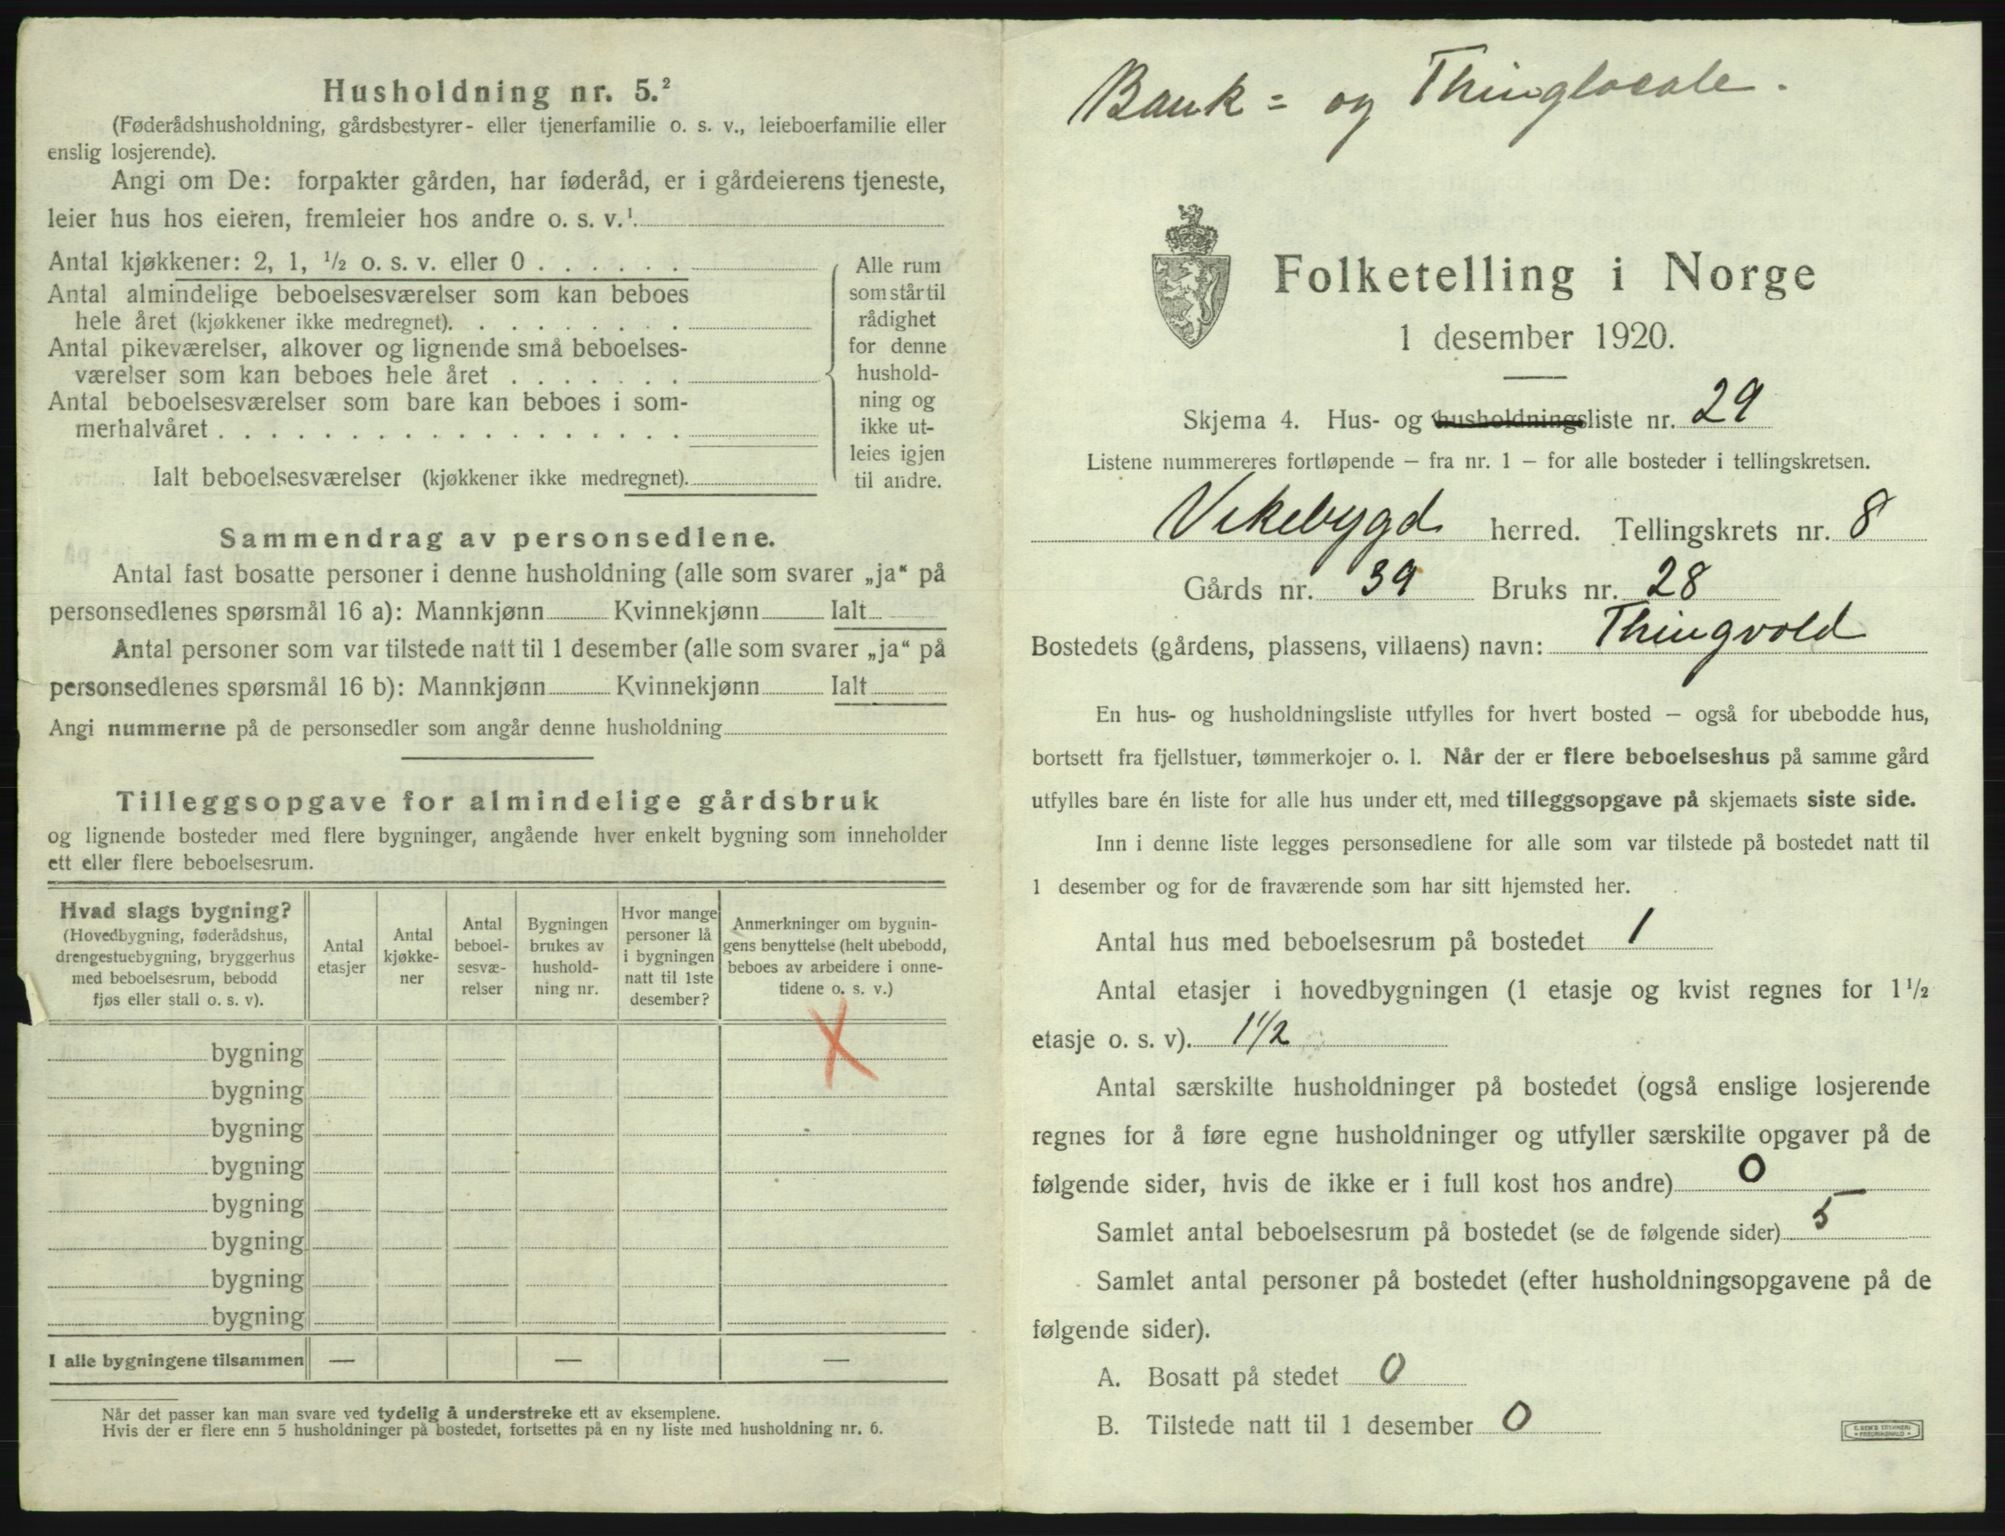 Husholdning nr. 5.²
(Føderådshusholdning, gårdsbestyrer- eller tjenerfamilie o. s. v., leieboerfamilie eller
enslig losjerende).
Angi om De: forpakter gården, har føderåd, er i gårdeierens tjeneste,
leier hus hos eieren, fremleier hos andre o. s. v.¹
Antal kjøkkener: 2, 1, ½ o. s. v. eller 0 . . . . . .
Antal almindelige beboelsesværelser som kan beboes
hele året (kjøkkener ikke medregnet). . . . . . . . .
Antal pikeværelser, alkover og lignende små beboelses-
værelser som kan beboes hele året . . . . . . .
Antal beboelsesværelser som bare kan beboes i som-
merhalvåret . . . . . . . . . . . . . . . . . .
Ialt beboelsesværelser (kjøkkener ikke medregnet).
Alle rum
som står til
rådighet
for denne
hushold-
ning og
ikke ut-
leies igjen
til andre.
Sammendrag av personsedlene.
Antal fast bosatte personer i denne husholdning (alle som svarer „ja“ på
personsedlenes spørsmål 16 a): Mannkjønn Kvinnekjønn Ialt
Antal personer som var tilstede natt til 1 desember (alle som svarer „ja“ på
personsedlenes spørsmål 16 b): Mannkjønn Kvinnekjønn Ialt
Angi nummerne på de personsedler som angår denne husholdning
Tilleggsopgave for almindelige gårdsbruk
og lignende bosteder med flere bygninger, angående hver enkelt bygning som inneholder
ett eller flere beboelsesrum.
Hvad slags bygning?
(Hovedbygning, føderådshus,
drengestuebygning, bryggerhus
med beboelsesrum, bebodd
fjøs eller stall o. s. v).
Antal
etasjer
Antal
kjøkke-
ner
Antal
beboel-
sesvæ-
relser
Bygningen
brukes av
hushold-
ning nr.
Hvor mange
personer lå
i bygningen
natt til 1ste
desember?
Anmerkninger om bygnin-
gens benyttelse (helt ubebodd,
beboes av arbeidere i onne-
tidene o. s. v.)
bygning
X
bygning
bygning
bygning
bygning
bygning
bygning
bygning
I alle bygningene tilsammen — — —
Når det passer kan man svare ved tydelig å understreke ett av eksemplene.
Hvis der er flere enn 5 husholdninger på bostedet, fortsettes på en ny liste med husholdning nr. 6.
Bank= og Thinglocale.
Folketelling i Norge
1 desember 1920.
Skjema 4. Hus- og husholdningsliste nr. 29
Listene nummereres fortløpende – fra nr. 1 – for alle bosteder i tellingskretsen.
Vikebygd herred. Tellingskrets nr. 8
Gårds nr. 39 Bruks nr. 28
Bostedets (gårdens, plassens, villaens) navn: Thingvold
En hus- og husholdningsliste utfylles for hvert bosted – også for ubebodde hus,
bortsett fra fjellstuer, tømmerkojer o. l. Når der er flere beboelseshus på samme gård
utfylles bare én liste for alle hus under ett, med tilleggsopgave på skjemaets siste side.
Inn i denne liste legges personsedlene for alle som var tilstede på bostedet natt til
1 desember og for de fraværende som har sitt hjemsted her.
Antal hus med beboelsesrum på bostedet 1
Antal etasjer i hovedbygningen (1 etasje og kvist regnes for 1½
etasje o. s. v). 1½
Antal særskilte husholdninger på bostedet (også enslige losjerende
regnes for å føre egne husholdninger og utfyller særskilte opgaver på de
følgende sider, hvis de ikke er i full kost hos andre) 0
Samlet antal beboelsesrum på bostedet (se de følgende sider) 5
Samlet antal personer på bostedet (efter husholdningsopgavene på de
følgende sider).
A. Bosatt på stedet 0
B. Tilstede natt til 1 desember 0